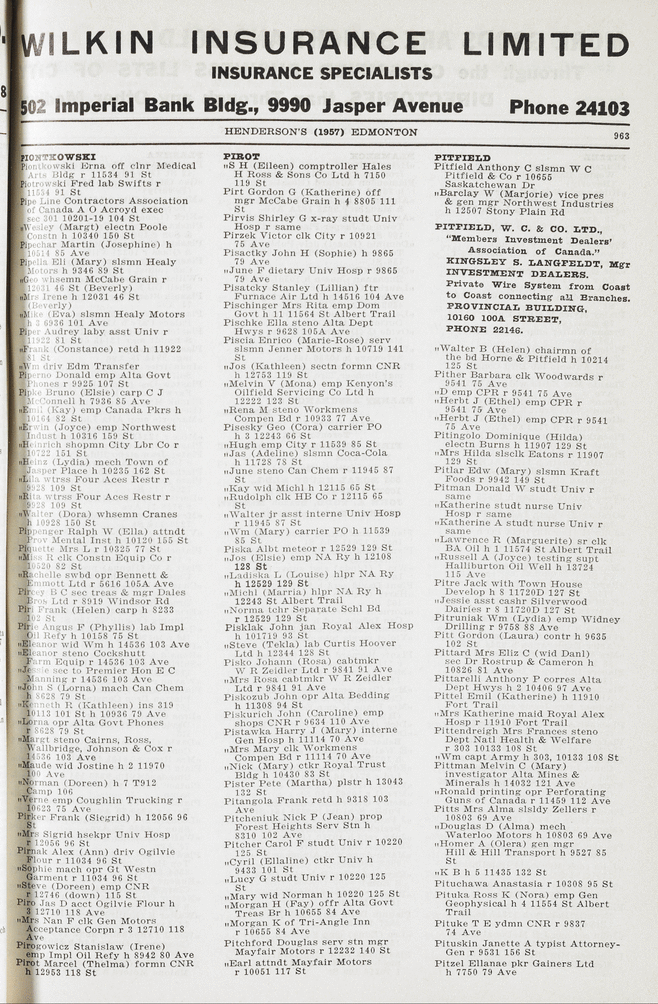 WILKIN INSURANCE LIMITED
INSURANCE SPECIALISTS
502 Imperial Bank Bldg., 9990 Jasper Avenue Phone 24103
HENDERSON'S (1957) EDMONTON 963
PIONTKOWSKI
Piontkowski Erna off clnr Medical
Arts Bldg r 11534 91 St
Piotrowski Fred lab Swifts r
11534 91 St
Pipe Line Contractors Association
of Canada A O Acroyd exec
sec 301 10201-19 104 St
„Wesley (Margt) electn Poole
Constn h 10340 150 St
Pipechar Martin (Josephine) h
10514 85 Ave
Pipella Eli (Mary) slsmn Healy
Motors h 9346 89 St
„Geo whsemn McCabe Grain r
12031 46 St (Beverly)
„Mrs Irene h 12031 46 St
(Beverly)
„Mike (Eva) slsmn Healy Motors
h 3 6936 101 Ave
Piper Audrey laby asst Univ r
11922 81 St
„Frank (Constance) retd h 11922
81 St
„Wm driv Edm Transfer
Piperno Donald emp Alta Govt
Phones r 9925 107 St
Pipke Bruno (Elsie) carp C J
McConnell h 7936 85 Ave
„Emil (Kay) emp Canada Pkrs h
10164 82 St
„Erwin (Joyce) emp Northwest
Indust h 10316 159 St
„Heinrich shopmn City Lbr Co r
10722 151 St
„Heinz (Lydia) mech Town of
Jasper Place h 10235 162 St
„Lila wtrss Four Aces Restr r
9928 109 St
„Rita wtrss Four Aces Restr r
9928 109 St
„Walter (Dora) whsemn Cranes
h 10928 150 St
Pippenger Ralph W (Ella) attndt
Prov Mental Inst h 10120 155 St
Piquette Mrs L r 10325 77 St
„Miss R clk Constn Equip Co r
10520 82 St
„Rachelle swbd opr Bennett &
Emmott Ltd r 5616 105A Ave
Pircey B C sec treas & mgr Dales
Bros Ltd r 8919 Windsor Rd
Pirl Frank (Helen) carp h 8233
102 St
Pirie Angus F (Phyllis) lab Impl
Oil Refy h 10158 75 St
„Eleanor wid Wm h 14536 103 Ave
„Eleanor steno Cockshutt
Farm Equip r 14536 103 Ave
„Jessie sec to Premier Hon E C
Manning r 14536 103 Ave
„John S (Lorna) mach Can Chem
h 8628 79 St
„Kenneth R (Kathleen) ins 319
10113 101 St h 10936 79 Ave
„Lorna opr Alta Govt Phones
r 8628 79 St
„Margt steno Cairns, Ross,
Wallbridge, Johnson & Cox r
14536 103 Ave
„Maude wid Jostine h 2 11970
100 Ave
„Norman (Doreen) h 7 T912
Camp 106
„Verne emp Coughlin Trucking r
10623 75 Ave
Pirker Frank (Siegrid) h 12056 96
St
„Mrs Sigrid hsekpr Univ Hosp
r 12056 96 St
Pirnak Alex (Ann) driv Ogilvie
Flour r 11034 96 St
„Sophie mach opr Gt Westn
Garment r 11034 96 St
„Steve (Doreen) emp CNR
r 12746 (down) 115 St
Piro Jas D acct Ogilvie Flour h
3 12710 118 Ave
„Mrs Nan F clk Gen Motors
Acceptance Corpn r 3 12710 118
Ave
Pirogowicz Stanislaw (Irene)
emp Impl Oil Refy h 8942 80 Ave
Pirot Marcel (Thelma) formn CNR
h 12953 118 St
PIROT
„S H (Eileen) comptroller Hales
H Ross & Sons Co Ltd h 7150
119 St
Pirt Gordon G (Katherine) off
mgr McCabe Grain h 4 8805 111
St
Pirvis Shirley G x-ray studt Univ
Hosp r same
Pirzek Victor clk City r 10921
75 Ave
Pisactky John H (Sophie) h 9865
79 Ave
„June F dietary Univ Hosp r 9865
79 Ave
Pisatcky Stanley (Lillian) ftr
Furnace Air Ltd h 14516 104 Ave
Pischinger Mrs Rita emp Dom
Govt h 11 11564 St Albert Trail
Pischke Ella steno Alta Dept
Hwys r 9628 105A Ave
Piscia Enrico (Marie-Rose) serv
slsmn Jenner Motors h 10719 141
St
„Jos (Kathleen) sectn formn CNR
h 12753 119 St
„Melvin V (Mona) emp Kenyon's
Oilfield Servicing Co Ltd h
12222 123 St
„Rena M steno Workmens
Compen Bd r 10933 77 Ave
Pisesky Geo (Cora) carrier PO
h 3 12243 66 St
„Hugh emp City r 11539 85 St
„Jas (Adeline) slsmn Coca-Cola
h 11728 78 St
„June steno Can Chem r 11945 87
St
„Kay wid Michl h 12115 65 St
„Rudolph clk HB Co r 12115 65
St
„Walter jr asst interne Univ Hosp
r 11945 87 St
„Wm (Mary) carrier PO h 11539
85 St
Piska Albt meteor r 12529 129 St
„Jos (Elsie) emp NA Ry h 12108
128 St
„Ladiska L (Louise) hlpr NA Ry
h 12529 129 St
„Michl (Marria) hlpr NA Ry h
12243 St Albert Trail
„Norma tchr Separate Schl Bd
r 12529 129 St
Pisklak John jan Royal Alex Hosp
h 101719 93 St
„Steve (Tekla) lab Curtis Hoover
Ltd h 12344 128 St
Pisko Johann (Rosa) cabtmkr
W R Zeidler Ltd r 9841 91 Ave
„Mrs Rosa cabtmkr W R Zeidler
Ltd r 9841 91 Ave
Piskozub John opr Alta Bedding
h 11308 94 St
Piskurich John (Caroline) emp
shops CNR r 9634 110 Ave
Pistawka Harry J (Mary) interne
Gen Hosp h 11114 70 Ave
„Mrs Mary clk Workmens
Compen Bd r 11114 70 Ave
„Nick (Mary) ctkr Royal Trust
Bldg h 10430 83 St
Pister Pete (Martha) plstr h 13043
132 St
Pitangola Frank retd h 9318 103
Ave
Pitcheniuk Nick P (Jean) prop
Forest Heights Serv Stn h
8310 102 Ave
Pitcher Carol F studt Univ r 10220
125 St
„Cyril (Ellaline) ctkr Univ h
9433 101 St
„Lucy G studt Univ r 10220 125
St
„Mary wid Norman h 10220 125 St
„Morgan H (Fay) offr Alta Govt
Treas Br h 10655 84 Ave
„Morgan K of Tri-Angle Inn
r 10655 84 Ave
Pitchford Douglas serv stn mgr
Mayfair Motors r 12232 140 St
„Earl attndt Mayfair Motors
r 10051 117 St
PITFIELD
Pitfield Anthony C slsmn W C
Pitfield & Co r 10655
Saskatchewan Dr
„Barclay W (Marjorie) vice pres
& gen mgr Northwest Industries
h 12507 Stony Plain Rd
PITFIELD, W. C. & CO. LTD.,
"Members Investment Dealers'
Association of Canada."
KINGSLEY S. LANGFELDT, Mgr
INVESTMENT DEALERS.
Private Wire System from Coast
to Coast connecting all Branches.
PROVINCIAL BUILDING,
10160 100A STREET,
PHONE 22146.
„Walter B (Helen) chairmn of
the bd Horne & Pitfield h 10214
125 St
Pither Barbara clk Woodwards r
9541 75 Ave
„D emp CPR r 9541 75 Ave
„Herbt J (Ethel) emp CPR r
9541 75 Ave
„Herbt J (Ethel) emp CPR r 9541
75 Ave
Pitingolo Dominique (Hilda)
electn Burns h 11907 129 St
„Mrs Hilda slsclk Eatons r 11907
129 St
Pitlar Edw (Mary) slsmn Kraft
Foods r 9942 149 St
Pitman Donald W studt Univ r
same
„Katherine studt nurse Univ
Hosp r same
„Katherine A studt nurse Univ r
same
„Lawrence R (Marguerite) sr clk
BA Oil h 1 11574 St Albert Trail
„Russell A (Joyce) testing supt
Halliburton Oil Well h 13724
115 Ave
Pitre Jack with Town House
Develop h 8 11720D 127 St
„Jessie asst cashr Silverwood
Dairies r 8 11720D 127 St
Pitruniak Wm (Lydia) emp Widney
Drilling r 9758 88 Ave
Pitt Gordon (Laura) contr h 9635
102 St
Pittard Mrs Eliz C (wid Danl)
sec Dr Rostrup & Cameron h
10826 81 Ave
Pittarelli Anthony P corres Alta
Dept Hwys h 2 10406 97 Ave
Pittel Emil (Katherine) h 11910
Fort Trail
„Mrs Katherine maid Royal Alex
Hosp r 11910 Fort Trail
Pittendreigh Mrs Frances steno
Dept Natl Health & Welfare
r 303 10133 108 St
„Wm capt Army h 303, 10133 108 St
Pittman Melvin C (Mary)
investigator Alta Mines &
Minerals h 14032 121 Ave
„Ronald printing opr Perforating
Guns of Canada r 11459 112 Ave
Pitts Mrs Alma slsldy Zellers r
10803 69 Ave
„Douglas D (Alma) mech
Waterloo Motors h 10803 69 Ave
„Homer A (Olera) gen mgr
Hill & Hill Transport h 9527 85
St
„K B h 5 11435 132 St
Pituchawa Anastasia r 10308 95 St
Pituka Ross K (Nora) emp Gen
Geophysical h 4 11554 St Albert
Trail
Pituke T E ydmn CNR r 9837
74 Ave
Pituskin Janette A typist Attorney-
Gen r 9531 156 St
Pitzel Ellanae pkr Gainers Ltd
h 7750 79 Ave